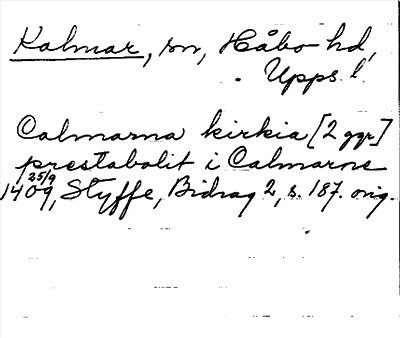 Kalmar, sn, Håbo hd,
Upps. l.
Calmarna kirkia [2 ggr]
prestabolit i Calmarne
25/9
1409, Styffe, Bidrag 2, s. 187. orig.